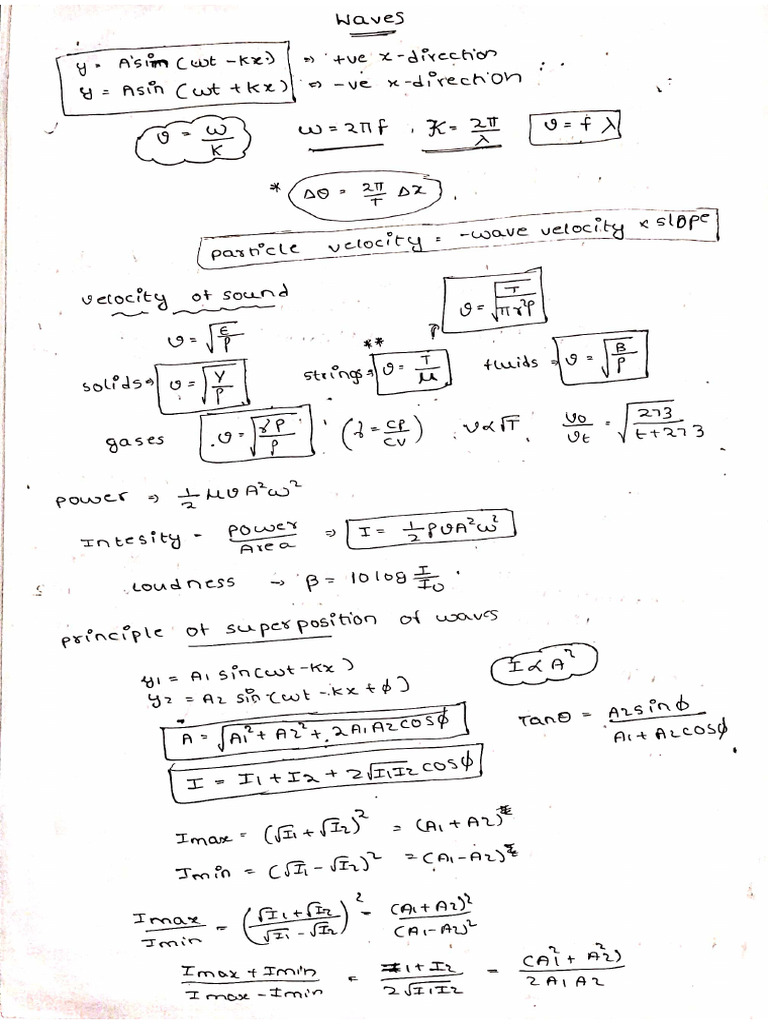 Waves
y = A sin (ωt - kx) ⇒ +ve x-direction
y = A sin (ωt + kx) ⇒ -ve x-direction
ϑ = ω/K ω = 2πf , K = 2π/λ ϑ = f λ
* Δθ = 2π/T Δx .
particle velocity = -wave velocity × slope
velocity of sound ϑ = √(T/πr²ρ)
ϑ = √(E/ρ)
solids ⇒ ϑ = √(Y/ρ) strings ⇒ ** ϑ = T/μ fluids ⇒ ϑ = √(B/ρ)
gases ϑ = √(γP/ρ) (γ = CP/CV) V ∝ √T ϑ0/ϑt = √(273/t+273)
power ⇒ 1/2 μϑA²ω²
Intesity - power/Area ⇒ I = 1/2 ρϑA²ω²
Loudness → β = 10 log I/I0
principle of superposition of waves
y1 = A1 sin(ωt - kx)
y2 = A2 sin(ωt - kx + ϕ) I ∝ A²
A = √(A1² + A2² + 2A1A2cosϕ) Tanθ = A2sinϕ/A1+A2cosϕ
I = I1 + I2 + 2√I1I2 cosϕ
Imax = (√I1 + √I2)² = (A1 + A2)²
Imin = (√I1 - √I2)² = (A1 - A2)²
Imax/Imin = (√I1 + √I2/√I1 - √I2)² - (A1 + A2)²/(A1 - A2)²
Imax + Imin/Imax - Imin = I1 + I2/2√I1I2 = (A1² + A2²)/2A1A2